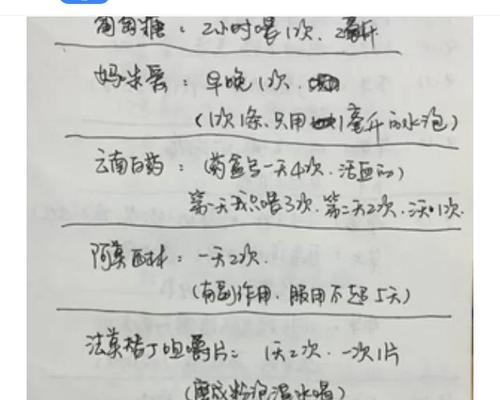 葡萄糖：2小时喂1次，2毫升
妈咪爱：早晚1次，
（1次1条，只用1毫升的水泡）
云南白药：（药盒写一天4次，活血的）
第一天我只喂3次，第二天2次，三天1次.
阿莫西林：一天2次.
（有副作用，服用不超5天）
法莫替丁咀嚼片：1天2次．一次1片
（磨成粉泡温水喝）